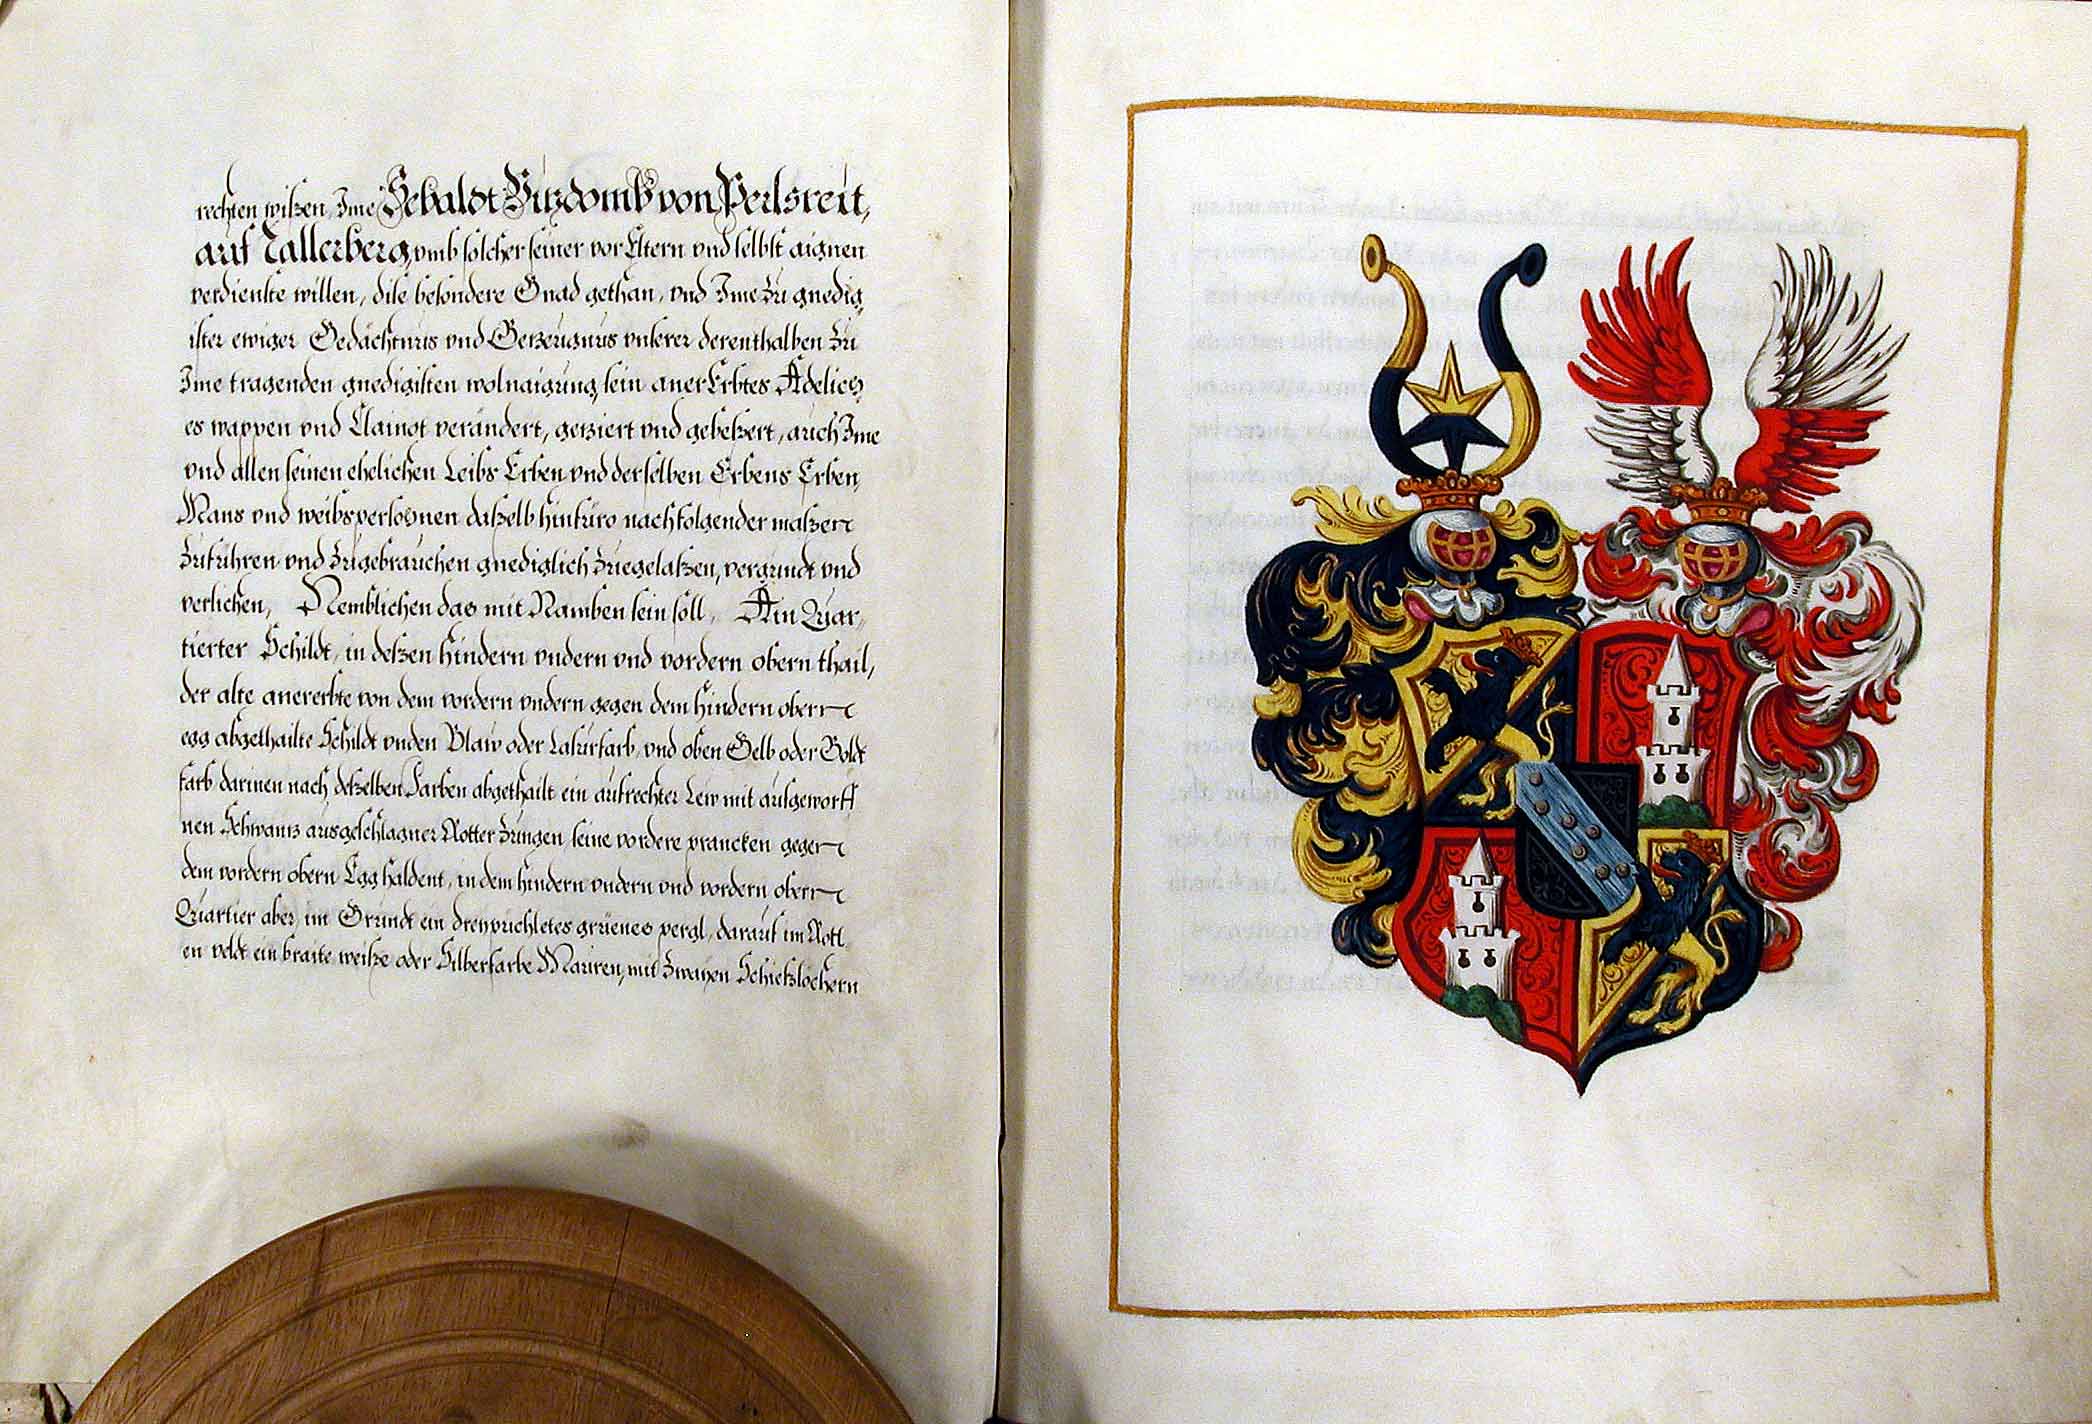 rechten wißen, Ime Sebaldt Vitzdomb von Perlsreit,
auf Tallerberg, vmb solcher seiner vor Eltern vnd selbst aignen
verdienste willen, dise besondere Gnad gethan, vnd Ime zu gnedig,,
ister ewiger Gedächtnus vnd Getzeugnus vnserer derenthalben zu
Ime tragenden gnedigisten wolnaigung, sein anerErbtes Adelich,,
es wappen vnd Clainot verändert, getziert vnd gebeßert, auch Ime
vnd allen seinen ehelichen Leibs Erben vnd derselben Erbens Erben,
Mans vnd weibspersohnen daßelb hinfüro nachfolgender maßen
zuführen vnd zugebrauchen gnediglich zuegelaßen, vergundt vnd
verlichen, Nemblichen das mit Namben sein soll, Ain Quar,,
tierter Schildt, in deßen hindern vndern vnd vordern obern thail,
der alte anererbte von dem vordern vndern gegen dem hindern obern
egg abgethailte Schildt vnden Blaw oder Lasurfarb, vnd oben Gelb oder Goldt
farb darinen nach deßelben Farben abgethailt ein aufrechter Lew mit aufgeworff
nen Schwantz ausgeschlagner Rotter Zungen seine vordere prancken gegen
dem vordern obern Egg haldent, in dem hindern vndern vnd vordern obern
Quartier aber, im Grundt ein dreypüchletes grüenes pergl, darauf im Rott
en veldt ein braite weiße oder Silberfarbe Mauren, mit zwayen Schießlöchern